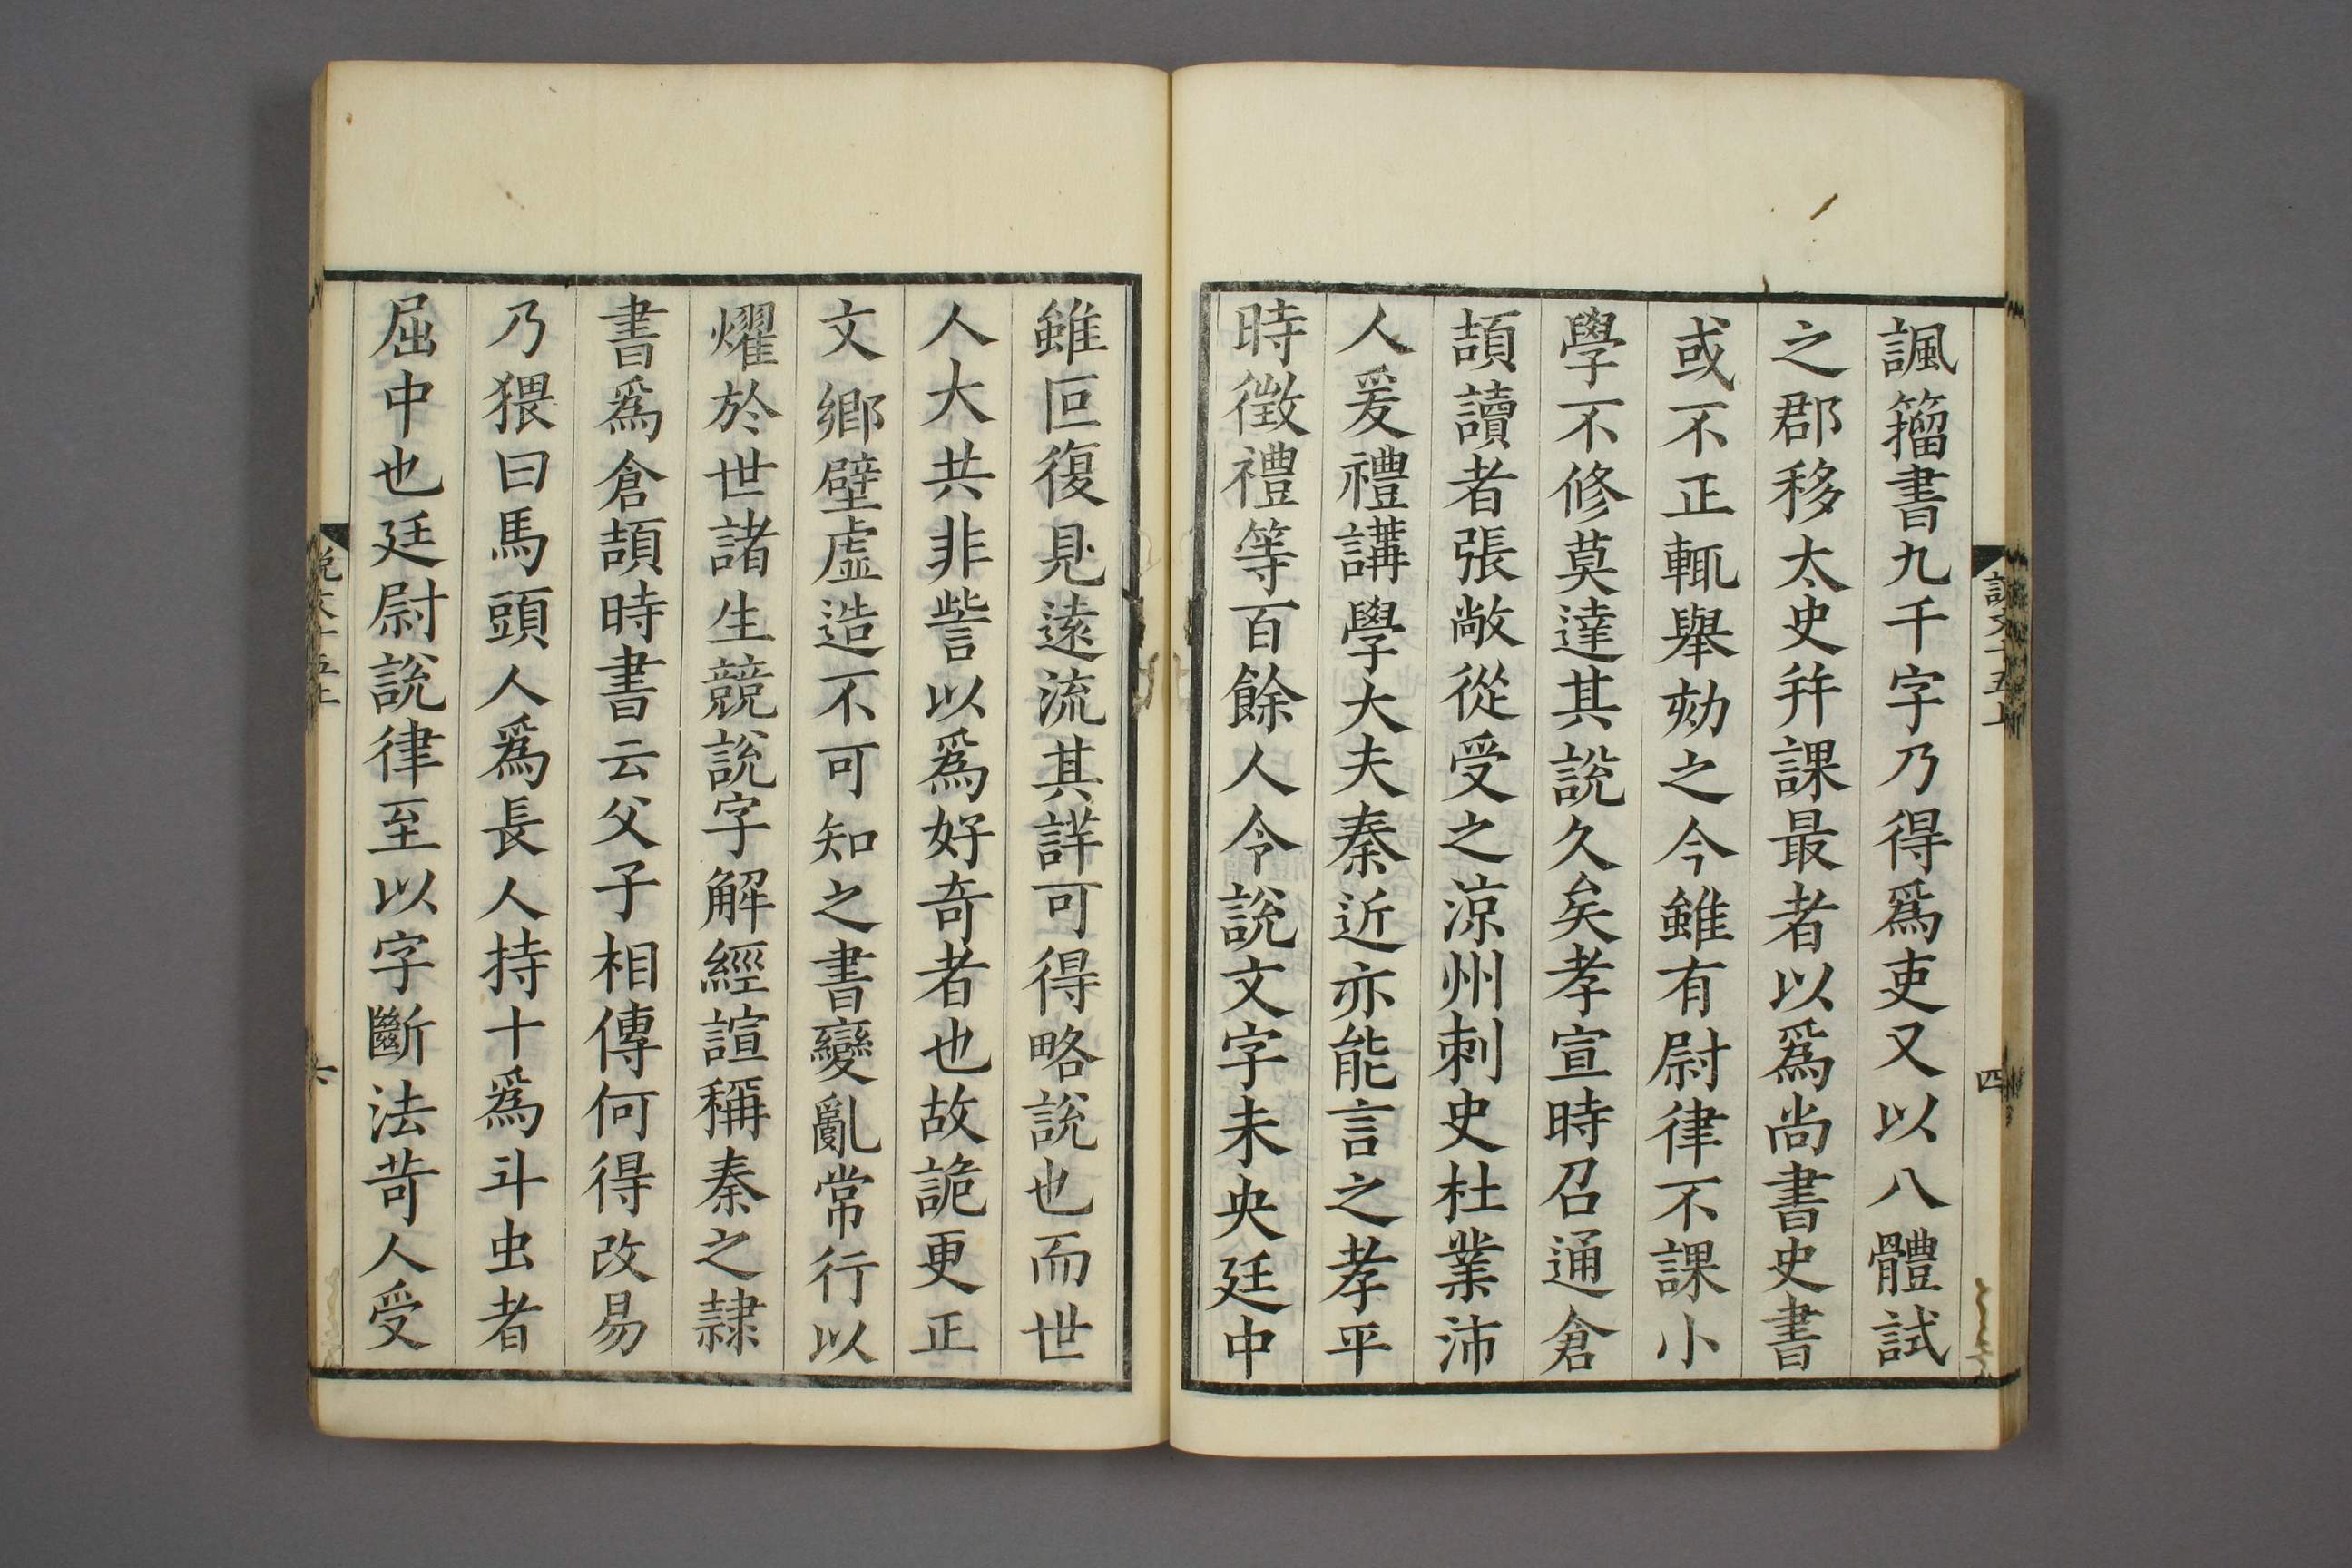 諷籒書九千字乃得爲吏又以八體試
之郡移太史幷課最者以爲尚書史書
或不正輒舉劾之今雖有尉律不課小
學不修莫達其說久矣孝宣時召通倉
頡讀者張敞從受之涼州刺史杜業沛
人爰禮講學大夫秦近亦能言之孝平
時徵禮等百餘人令說文字未央廷中
說文十五上
四
雖叵復見遠流其詳可得略說也而世
人大共非訾以爲好奇者也故詭更正
文鄉壁虛造不可知之書變亂常行以
燿於世諸生競說字解經諠稱秦之隷
書爲倉頡時書云父子相傳何得改易
乃猥曰馬頭人爲長人持十爲斗虫者
屈中也廷尉說律至以字斷法苛人受
說文十五上
六